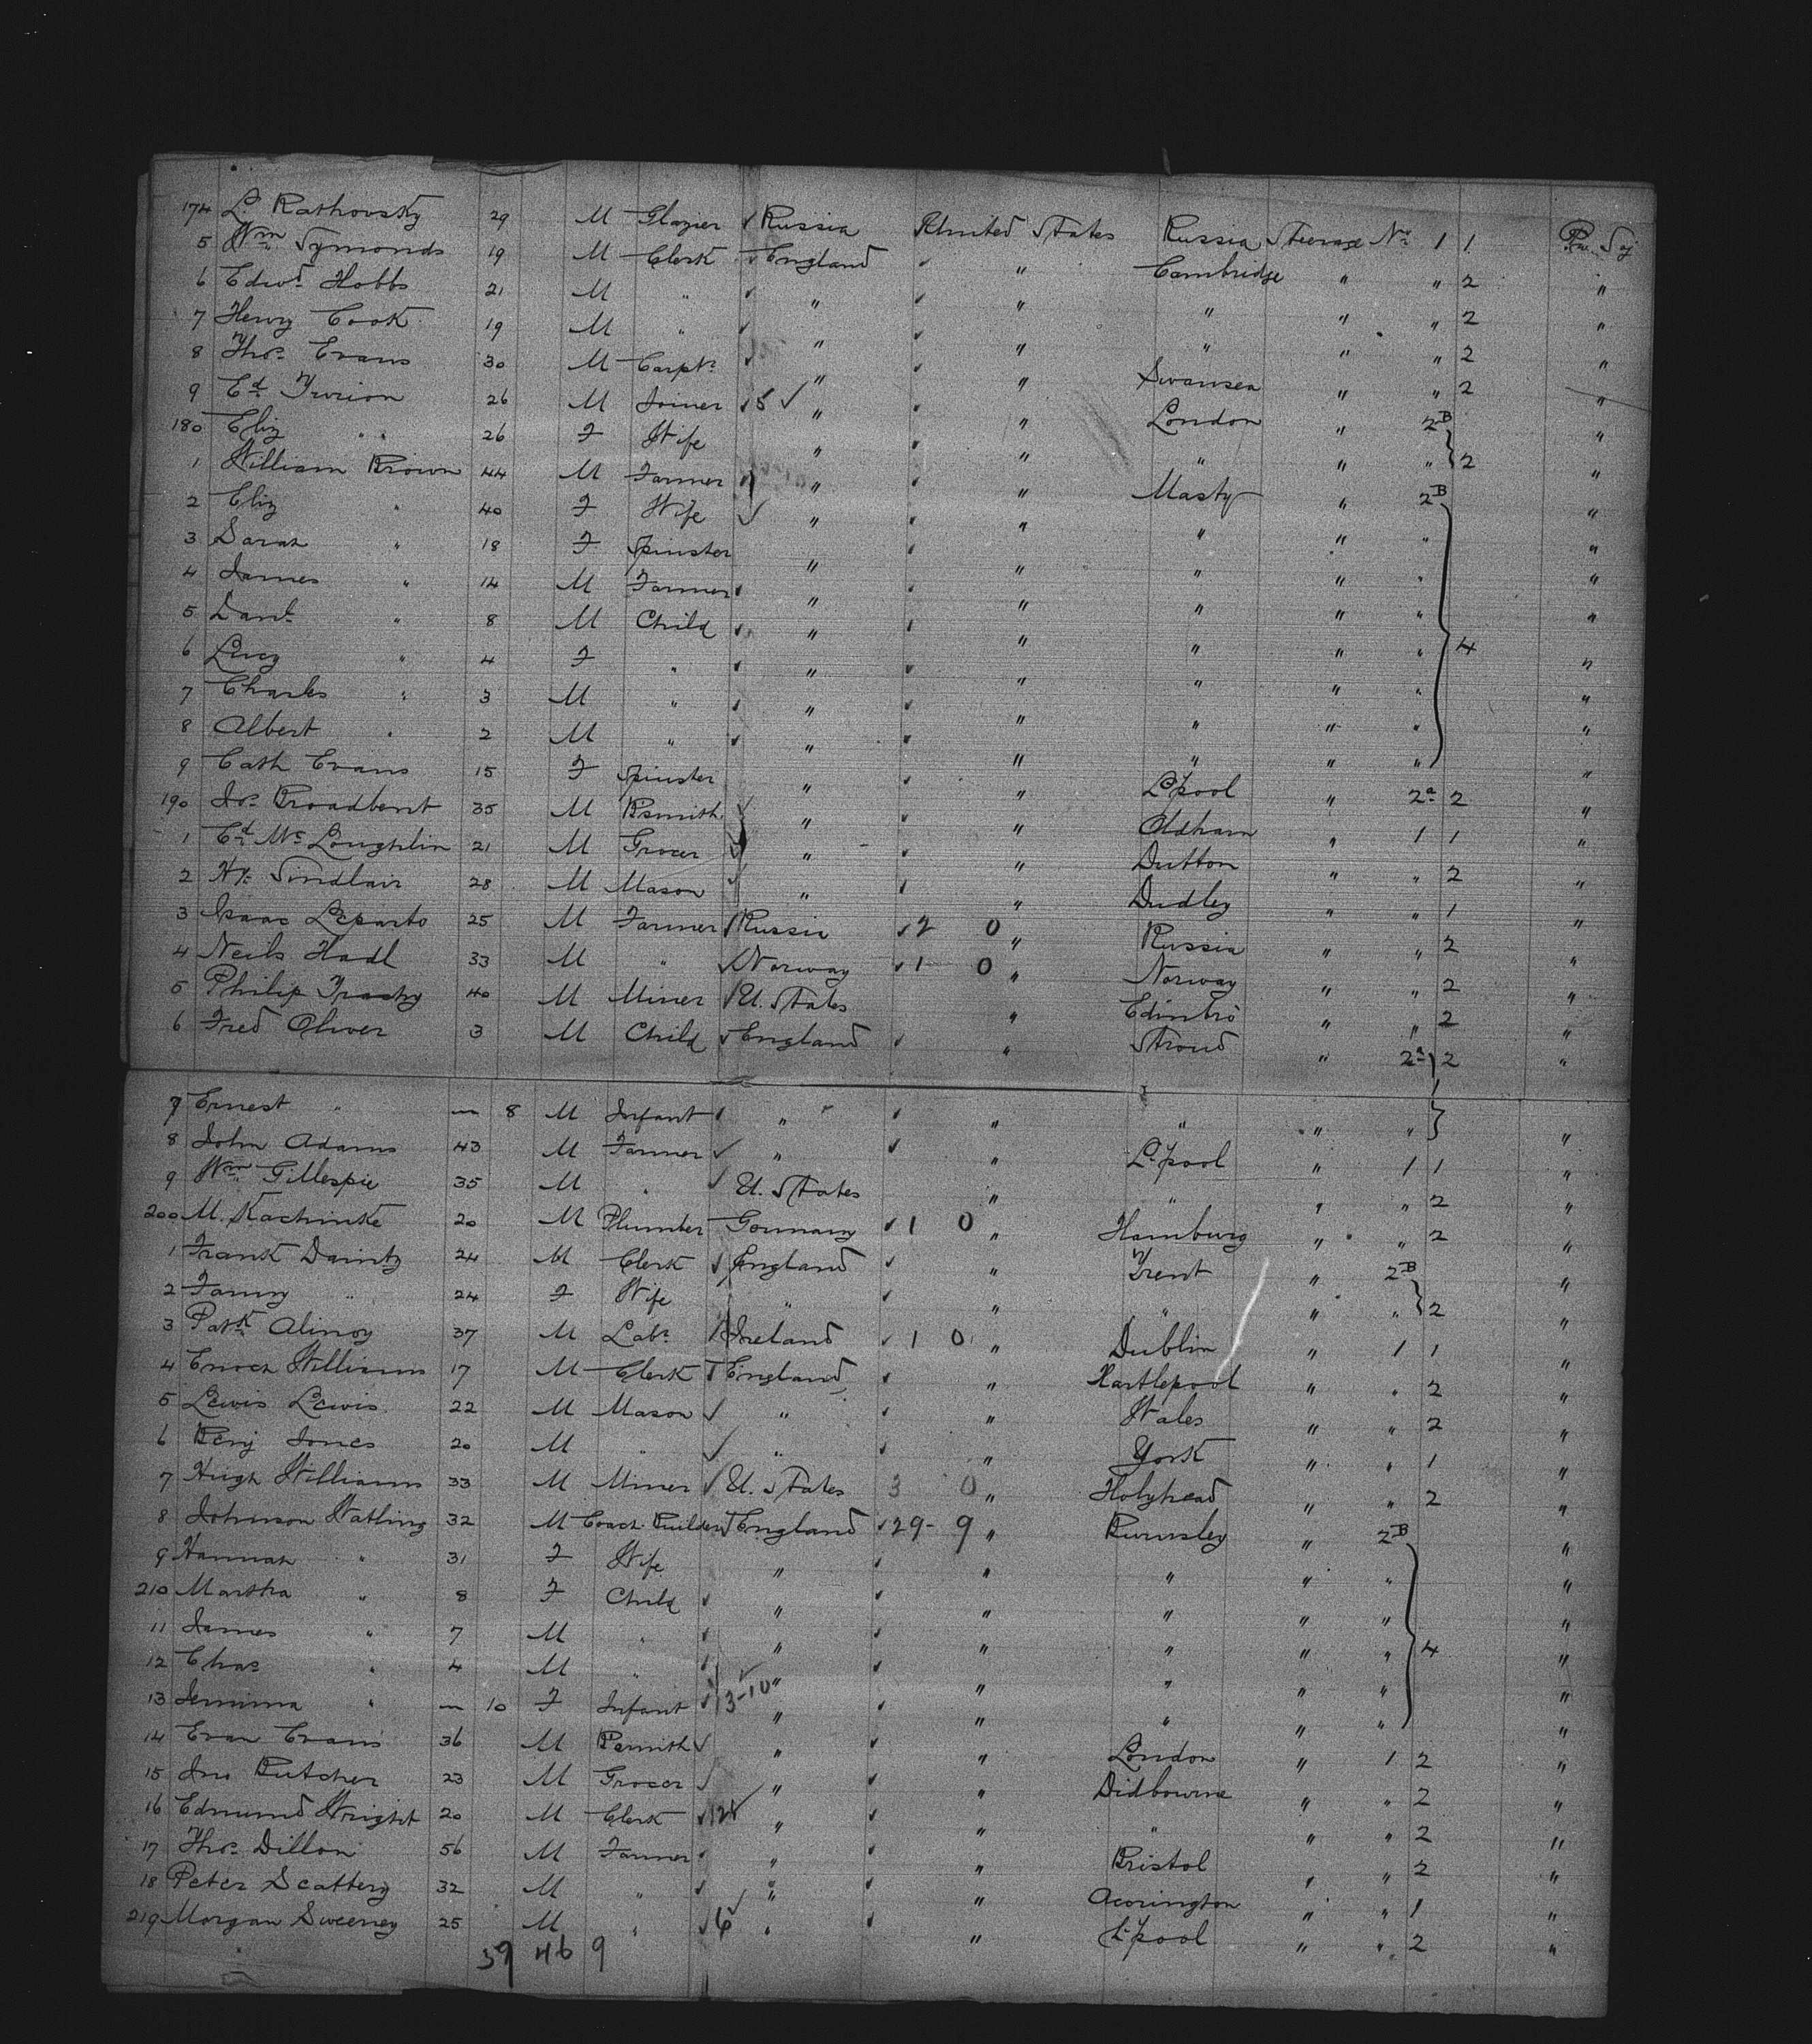 174 L. Rathovsky 29 M Glazier Russia United States Russia Steerage No 1 1
5 Wm Symonds 19 M Clerk England " Cambridge " " 2 "
6 Edwd Hobbs 21 M " " " " " " 2 "
7 Henry Cook 19 M " " " " " " 2 "
8 Thos Evans 30 M Carptr " " Swansea " " 2 "
9 Ed 26 M Joiner 5 " " London " 2B "
180 Eliz " 26 F Wife " " " " " 2 "
1 William Brown 44 M Farmer " " " 2B "
2 Eliz " 40 F Wife " " " " " "
3 Sarah " 18 F Spinster " " " " " "
4 James " 14 M Farmer " " " " " "
5 Danl " 8 M Child " " " " " 4 "
6 Lucy " 4 F " " " " " " "
7 Charles " 3 M " " " " " " "
8 Albert " 2 M " " " " " " "
9 Cath Evans 15 F Spinster " " L'pool " 2a 2 "
190 Jos Broadbent 35 M Bsmith " " Oldham " 1 1 "
1 Ed McLoughlin 21 M Grocer " " Dutton " " 2 "
2 Hy Sindlair 28 M Mason " " Dudley " " 1 "
3 Isaac 25 M Farmer Russia 2 0 " Russia " " 2 "
4 Neils Hadl 33 M " Norway 1 0 " Norway " " 2 "
5 Philip 40 M Miner U. States " Edinbro " " 2 "
6 Fred Oliver 3 M Child England " Stroud " 2a 2 "
7 Ernest " — 8 M Infant " " " " " "
8 John Adams 43 M Farmer " " L'pool " 1 1 "
9 Wm Gillespie 35 M " U. States " " " " 2 "
200 M. Kachinke 20 M Plumber Germany 1 0 " Hamburg " " 2 "
1 Frank Dainty 24 M Clerk England " Trent " 2B "
2 Fanny " 24 F Wife " " " " " 2 "
3 Patk 37 M Labr Ireland 1 0 " Dublin " 1 1 "
4 Enoch Williams 17 M Clerk England " Hartlepool " " 2 "
5 Lewis Lewis 22 M Mason " " Wales " " 2 "
6 Benj Jones 20 M " " " York " " 1 "
7 Hugh Williams 33 M Miner U. States 3 0 " Holyhead " " 2 "
8 Johnson Watling 32 M Coach Builder England 29 - 9 " " 2B "
9 Hannah " 31 F Wife " " " " " "
210 Martha " 8 F Child " " " " " "
11 James " 7 M " " " " " " 4 "
12 Chas " 4 M " " " " " " "
13 Jemima " — 10 F Infant 3-10 " " " " " "
14 Evan Evans 36 M Bsmith " " London " 1 2 "
15 Jno Butcher 23 M Grocer " " Didbourne " " 2 "
16 Edmund Wright 20 M Clerk 12 " " " " " 2 "
17 Thos Dillon 56 M Farmer " " Bristol " " 2 "
18 Peter Scattery 32 M " " " Accrington " " 1 "
219 Morgan Sweeney 25 M " 6 " " L'pool " " 2 "
39 46 9